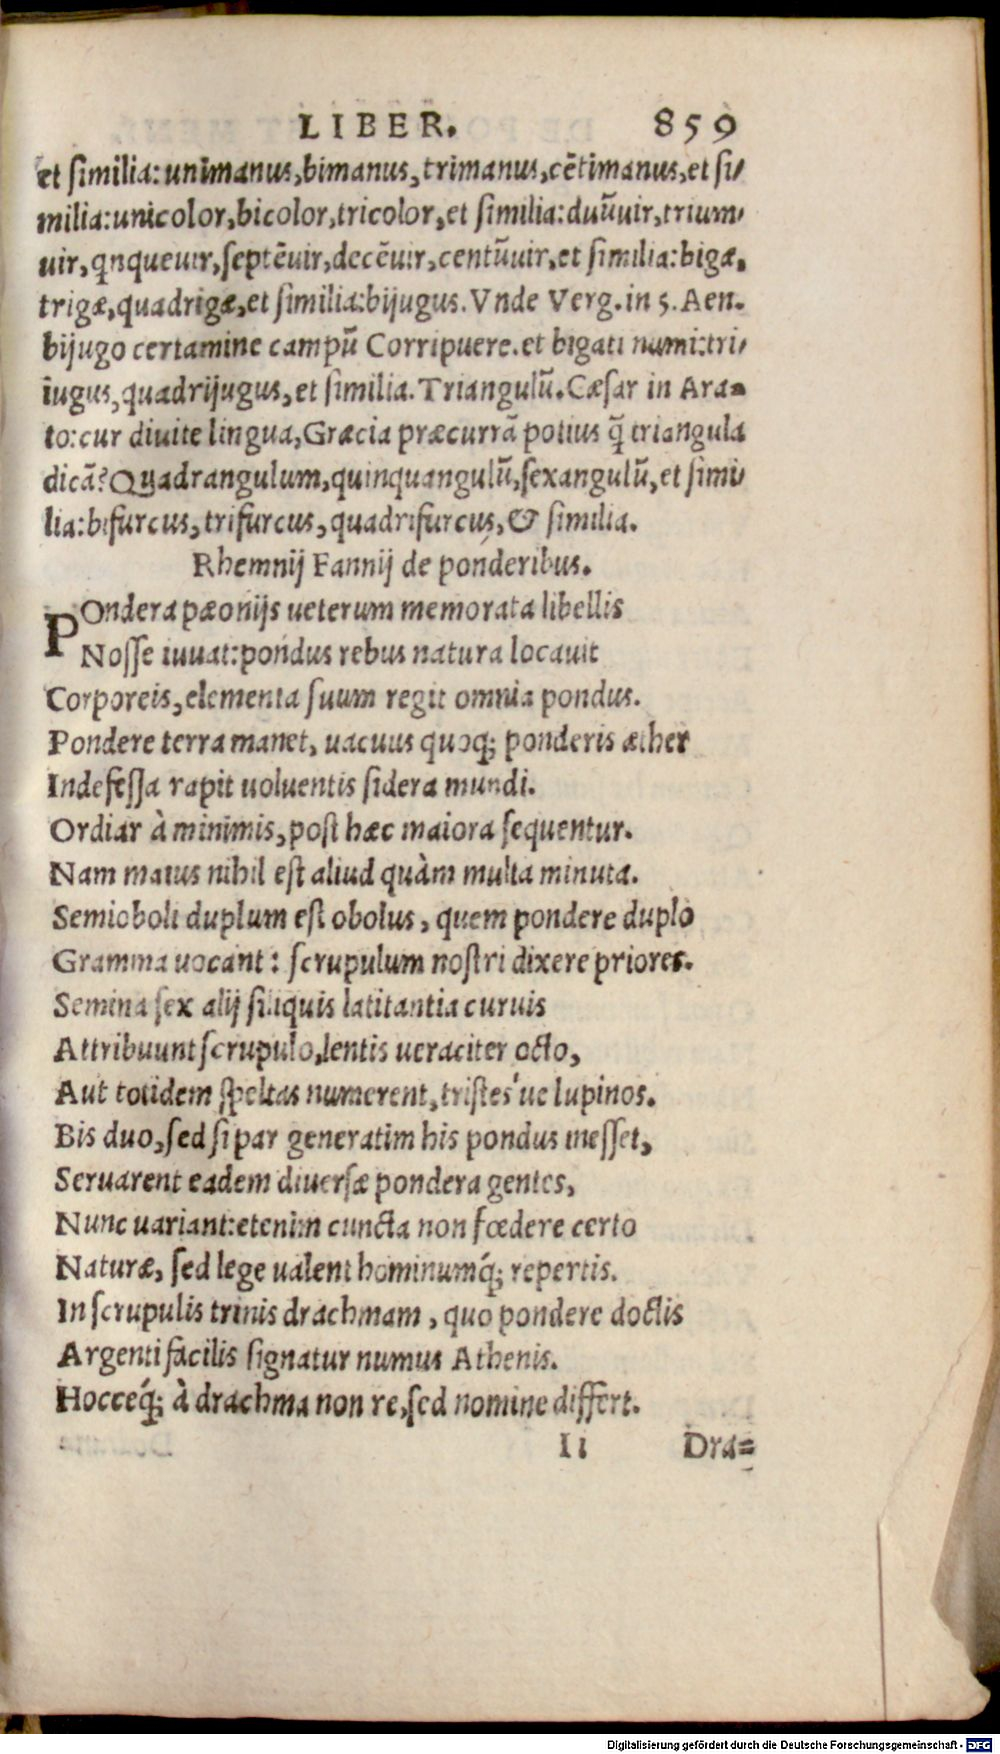 LIBER. 859
et similia: unimanus, bimanus, trimanus, cētimanus, et si-
milia: unicolor, bicolor, tricolor, et similia: duūuir, trium-
uir, qnqueuir, septēuir, decēuir, centūuir, et similia: bigæ,
trigæ, quadrigæ, et similia: bijugus. Vnde Verg. in 5. Aen.
bijugo certamine campū Corripuere. et bigati numi: tri-
iugus, quadrijugus, et similia. Triangulū. Cæsar in Ara=
to: cur diuite lingua, Græcia præcurrā potius q̄ triangula
dicā? Quadrangulum, quinquangulū, sexangulū, et simi-
lia: bifurcus, trifurcus, quadrifurcus, & similia.
Rhemnij Fannij de ponderibus.
POndera pæonijs ueterum memorata libellis
Nosse iuuat: pondus rebus natura locauit
Corporeis, elementa suum regit omnia pondus.
Pondere terra manet, uacuus quoq; ponderis æther
Indefessa rapit uoluentis sidera mundi.
Ordiar à minimis, post hæc maiora sequentur.
Nam maius nihil est aliud quàm multa minuta.
Semioboli duplum est obolus, quem pondere duplo
Gramma uocant: scrupulum nostri dixere priores.
Semina sex alij siliquis latitantia curuis
Attribuunt scrupulo, lentis ueraciter octo,
Aut totidem speltas numerent, tristes'ue lupinos.
Bis duo, sed si par generatim his pondus inesset,
Seruarent eadem diuersæ pondera gentes,
Nunc uariant: etenim cuncta non fœdere certo
Naturæ, sed lege ualent hominumq́; repertis.
In scrupulis trinis drachmam, quo pondere doctis
Argenti facilis signatur numus Athenis.
Hocceq́; à drachma non re, sed nomine differt.
Ii Dra=
Digitalisierung gefördert durch die Deutsche Forschungsgemeinschaft - DFG